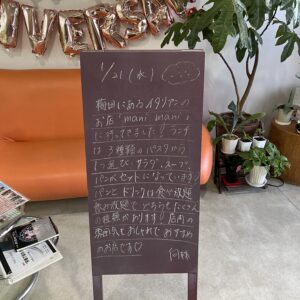 IVERS
1/21(水)
梅田にあるイタリアンの
お店「mani mani」
に行ってきました!ランチ
は3種類のパスタから
1つ選び、サラダ、スープ、
パンがセットになっています!
パンとドリンクは食べ放題
飲み放題で、どちらもたくさん
の種類があります!店内の
雰囲気もおしゃれでおすすめ
のお店です♡